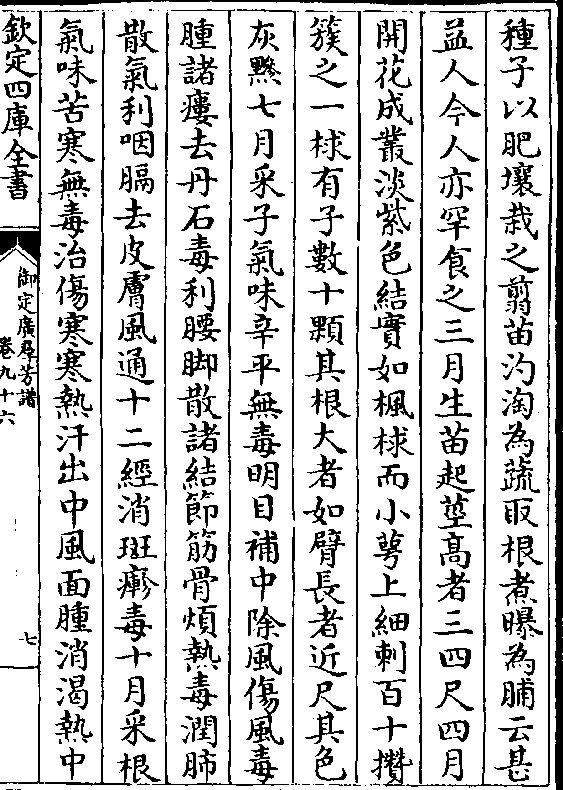 種子以肥壤栽之翦苗汋淘為蔬取根煮曝為脯云甚
益人今人亦罕食之三月生苗起莖高者三四尺四月
開花成叢淡紫色結實如楓梂而小萼上細刺百十攢
簇之一梂有子數十顆其根大者如臂長者近尺其色
灰黲七月采子氣味辛平無毒明目補中除風傷風毒
腫諸瘻去丹石毒利腰脚散諸結節筋骨煩熱毒潤肺
散氣利咽膈去皮膚風通十二經消斑瘮毒十月采根
氣味苦寒無毒治傷寒寒熱汗出中風面腫消渴熱中
欽定四庫全書
御定廣羣芳譜
卷九十六
七